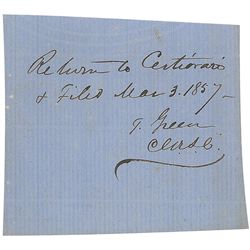 Return to Certiorari
& Filed Mar 3. 1857 -
T. Green
Clk S.C.